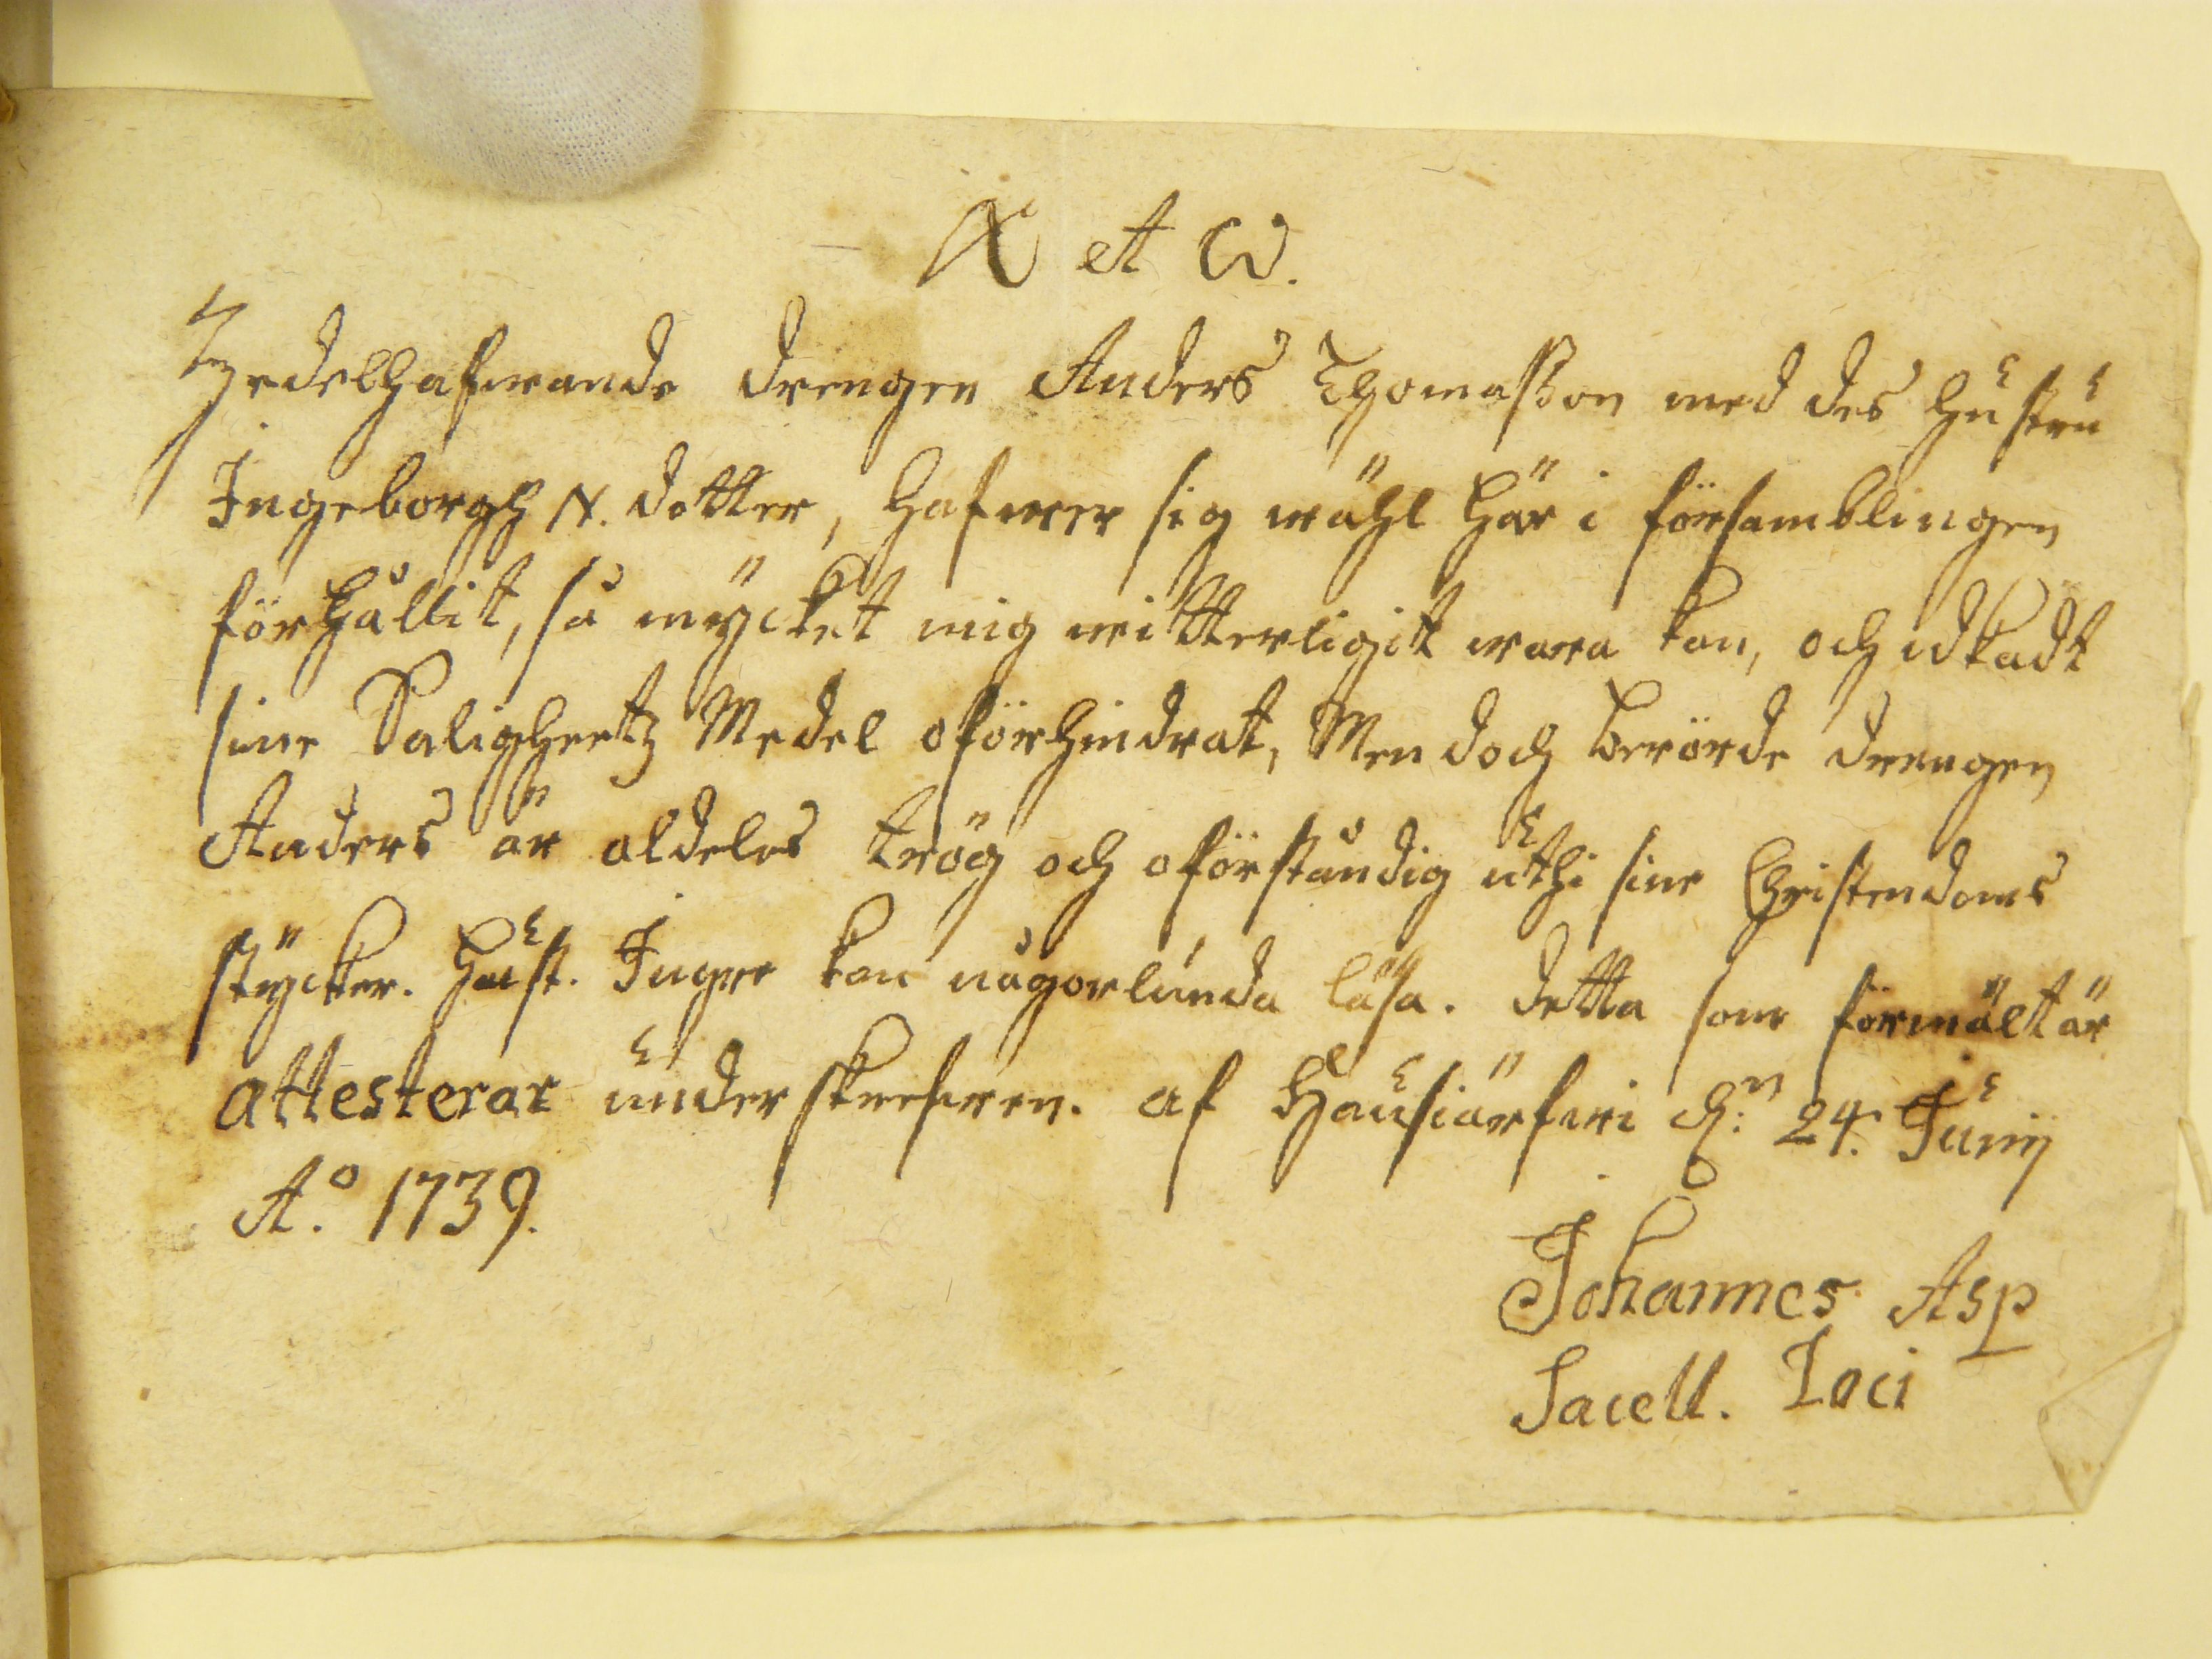 A et ω.
Zedelhafwande Drengen Anders Thomasson med des Hustru
Ingeborgh N. dotter, hafwer sig wähl här i församblingen
förhållit, så mycket mig witterligitt wara kan, och idkadt
sine Saligheetz Medel oförhindrat, Men doch berörde Drengen
Anders är aldeles trög och oförståndig uthi sine Christendoms
stycker. Hust. Inger kan någorlunda läsa. Detta som förmält är
attesterar underskrefwen. af Hausiärfwi d:n 24. Junij
A:o 1739.
Johannes Asp
Sacell. Loci